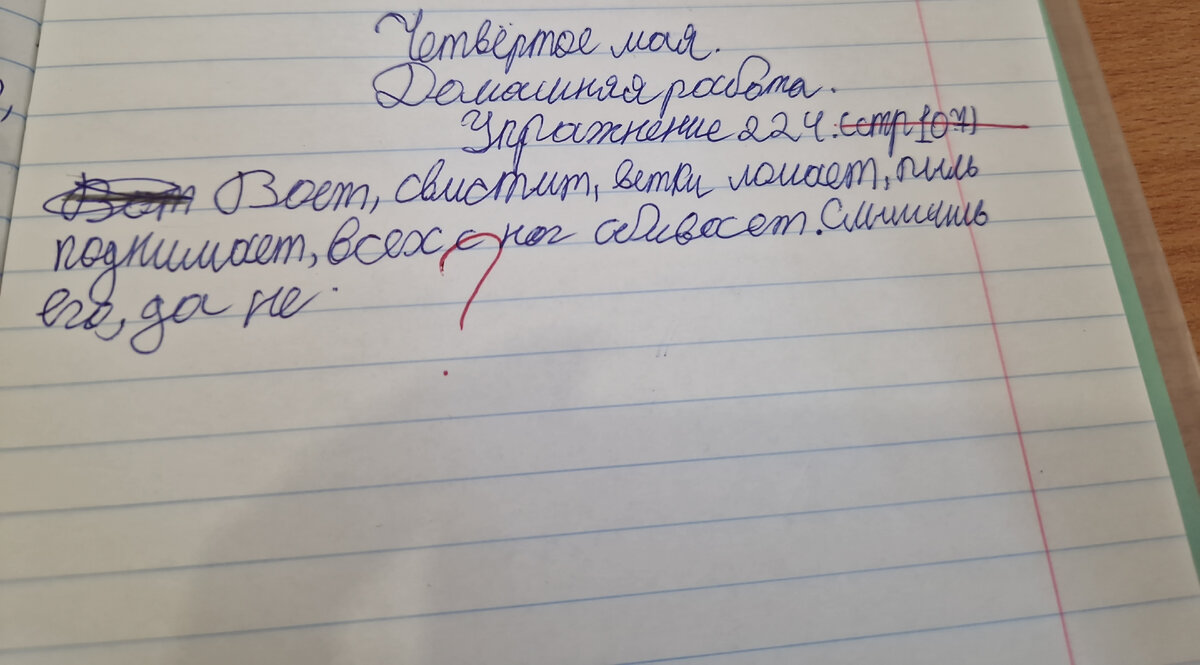 Четвёртое мая.
Домашняя работа.
Упражнение 224. (стр 107)
Воет, свистит, ветки ломает, пыль
поднимает, всех с ног сбивает. Слышишь
его, да не
?